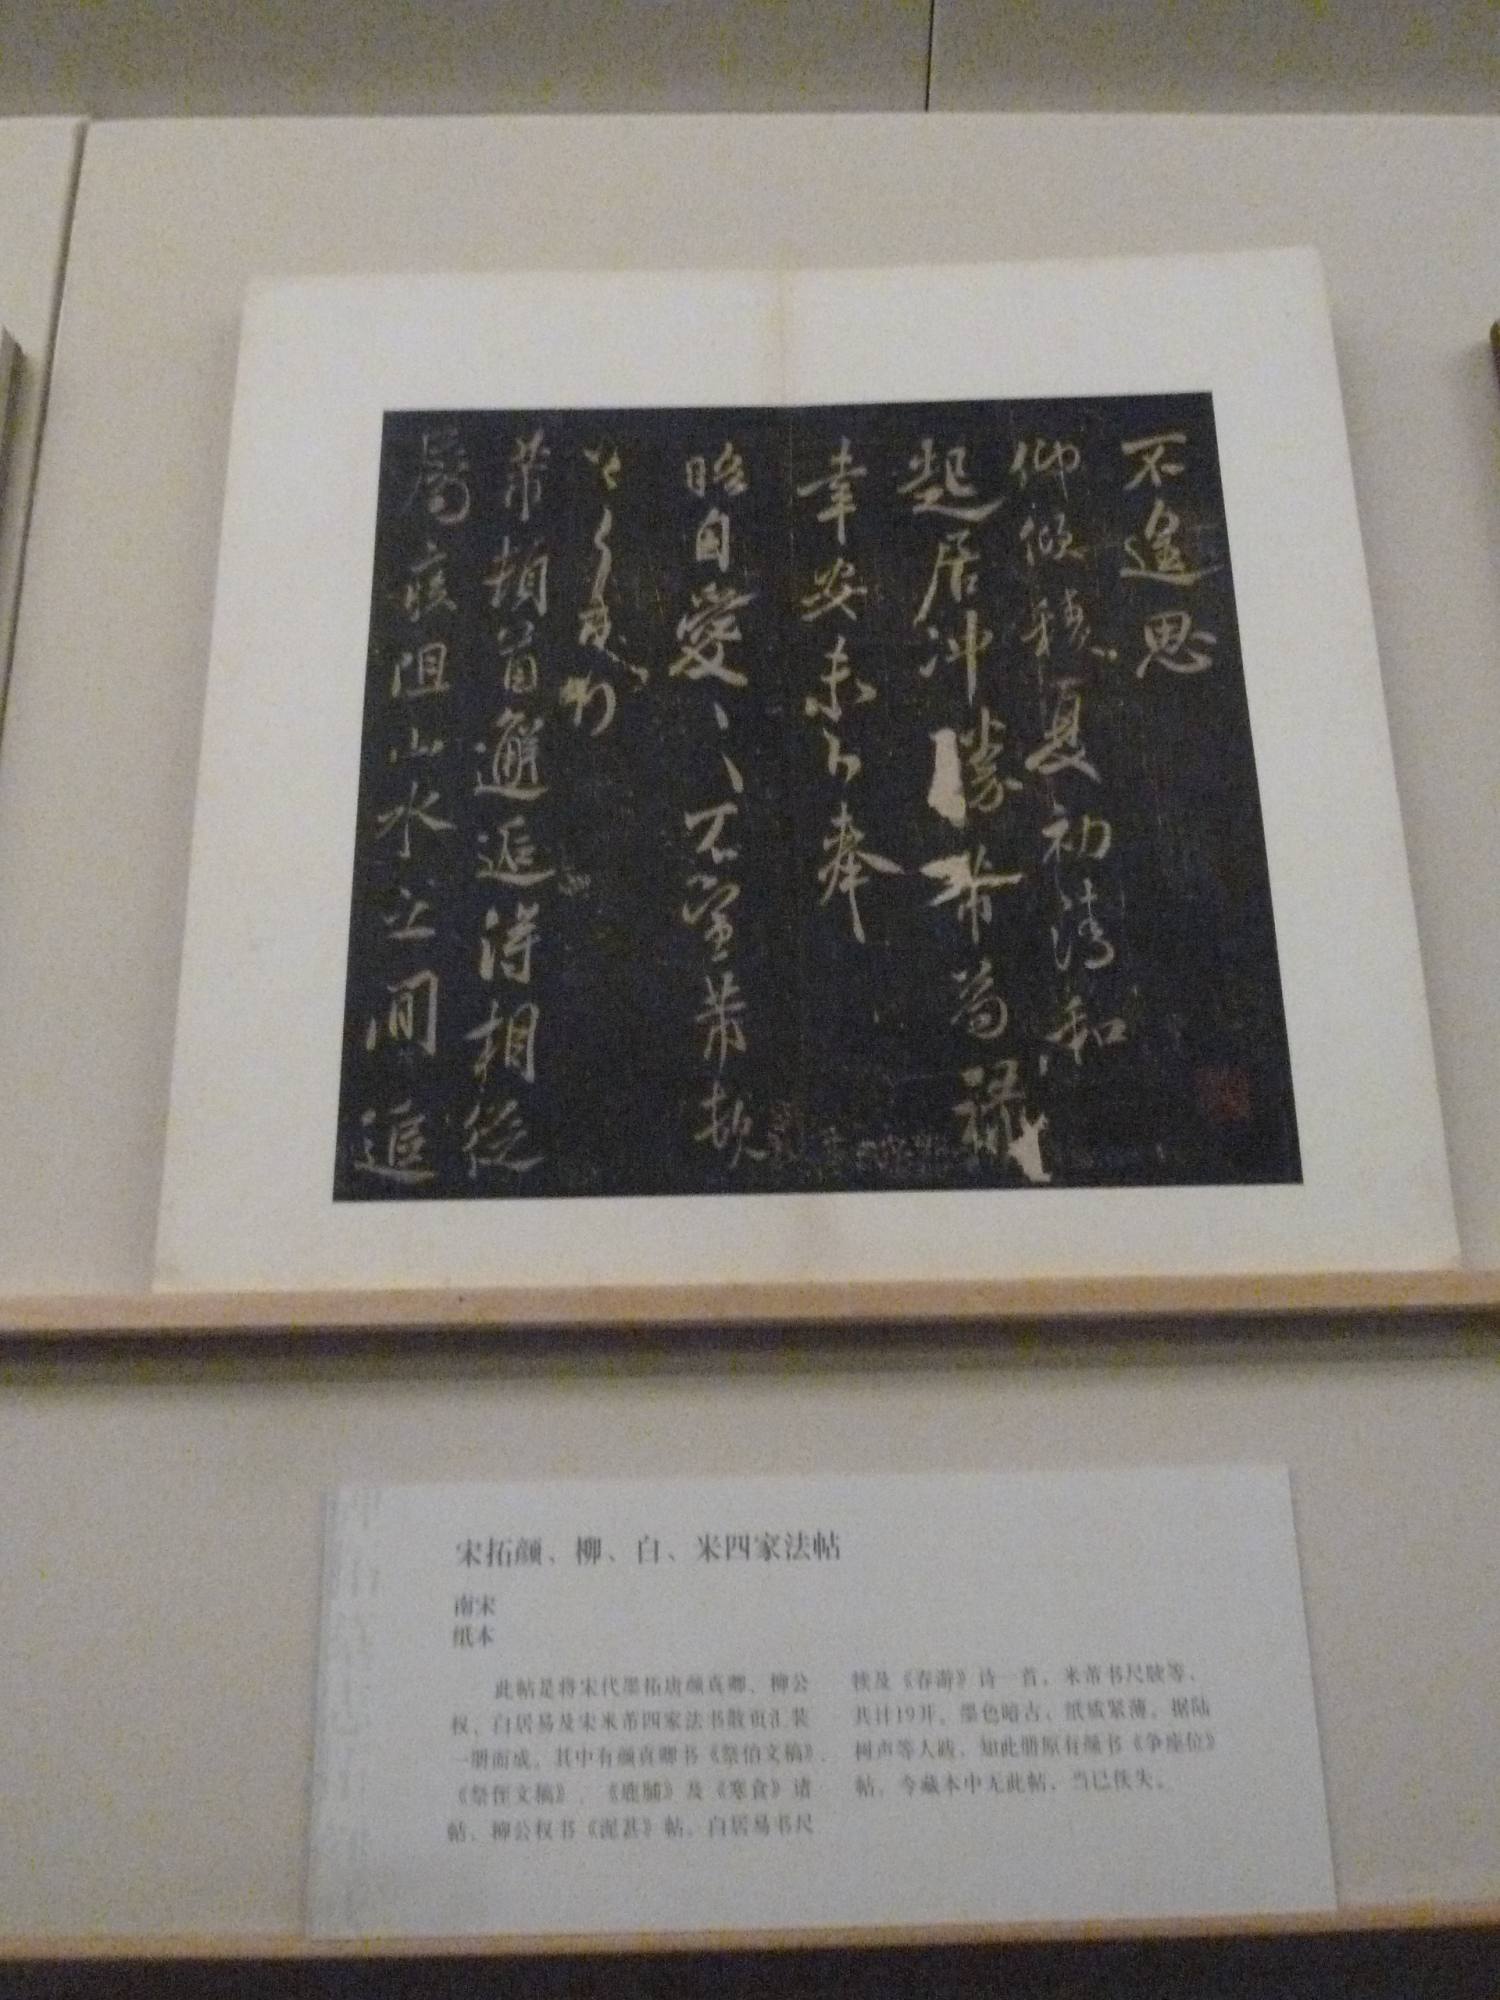 不遑思
仰傾積夏初清和
起居沖勝芾苟祿
幸安未卜奉
晤自愛、、不宣芾頓
首
芾頓首邂逅得相從
屬疾阻山水之間遥
宋拓颜、柳、白、米四家法帖
南宋
纸本
此帖是将宋代墨拓唐颜真卿、柳公
权、白居易及宋米芾四家法书散页汇装
一册而成。其中有颜真卿书《祭伯文稿》、
《祭侄文稿》、《鹿脯》及《寒食》诸
帖，柳公权书《泥甚》帖，白居易书尺
牍及《春游》诗一首，米芾书尺牍等，
共计19开。墨色暗古，纸质紧薄。据陆
树声等人跋，知此册原有颜书《争座位》
帖，今藏本中无此帖，当已佚失。